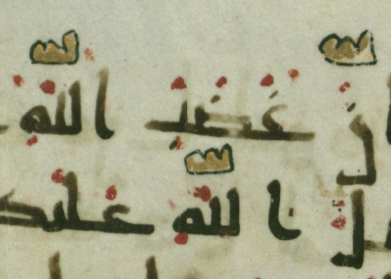 انّ غضب اللّه
ل اللّه عليك